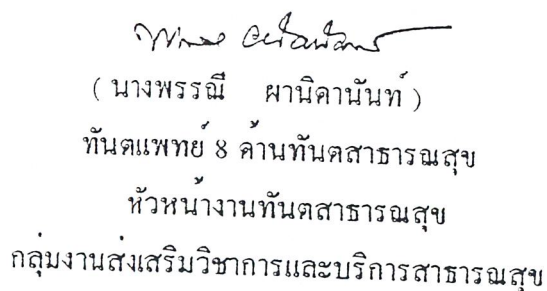 ( นางพรรณี ผานิคานันท์ )
ทันตแพทย์ 8 ด้านทันตสาธารณสุข
หัวหน้างานทันตสาธารณสุข
กลุ่มงานส่งเสริมวิชาการและบริการสาธารณสุข